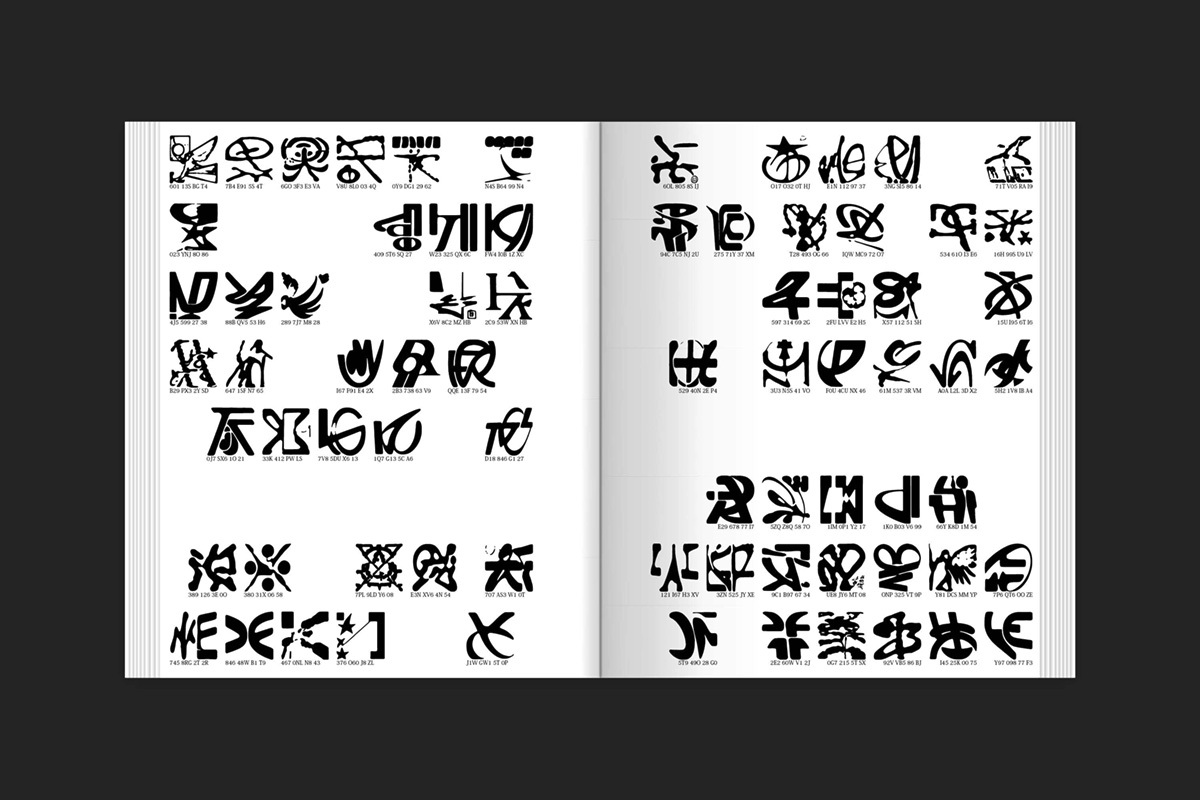 601 135 BG T4 7B4 E91 55 4T 6GO 3F3 E3 VA V8U 8L0 O3 4Q 0Y9 DG1 29 62 N45 B64 99 N4
023 YNJ 8O 86 409 5T6 SQ 27 W23 325 QX 6C FW4 I0B 1Z XC
4J5 599 27 38 88B QV5 53 H6 289 7J7 M8 28 X6V 8C2 MZ HB 2C9 53W XN HB
B29 PX3 2Y 5D 647 15F N7 65 I67 F91 E4 2X 2B3 738 63 V9 QQE 13F 79 54
0J7 SX6 1O 21 33K 412 PW LS 7V8 5DU X6 13 1Q7 G13 5C A6 D18 846 G1 27
389 126 3E 0O 380 31X 06 58 7PL 9LD Y6 08 E3N XV6 4N 54 707 AS3 W1 0T
745 8RG 2T 2R 846 48W B1 T9 467 0NL N8 43 376 O60 J8 ZL J1W GW1 5T 0P
6OL 805 85 IJ O17 O32 0T HJ E1N 112 97 37 3NG 5I5 86 14 71T V05 RA I9
94C 7C5 NJ 2U 275 71Y 37 XM T28 493 OG 66 IQW MC9 72 O7 534 61O I3 E6 16H 995 U9 LV
597 314 69 2G 2FU LVV E2 H5 X57 112 51 SH 15U I95 6T I6
529 40N 2E P4 3U3 N5S 41 VO F0U 4CU NX 46 61M 537 3R VM A0A L2L 3D X2 5H2 1V8 IB A4
E29 678 77 I7 5ZQ Z8Q 58 7O 1IM 0P1 YZ 17 1K0 B03 V6 99 66Y K8D 1M 54
121 I67 H3 XV 3ZN 525 JY XE 9C1 B97 67 34 UE8 JY6 MT 08 ONP 325 VT 9P Y81 DCS MM YP 7P6 QT6 OO ZE
5T9 49O 28 G0 2E2 60W V1 2J 0G7 215 5T 5X 92V VB5 86 BJ I45 25K 00 75 Y97 098 77 F3